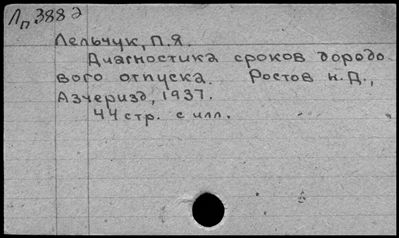 Лп 388 д
Лельчук, П.Я.
Диагностика сроков дородо
вого отпуска. Ростов н.Д.,
Азчеризд, 1937.
44 стр. с илл.